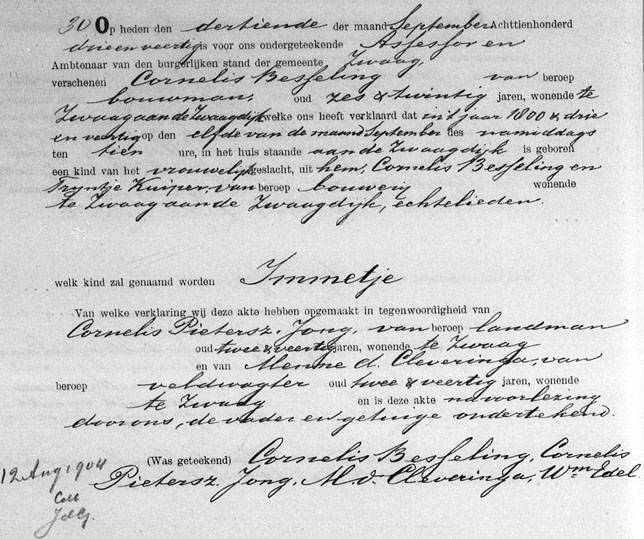 30 Op heden den dertiende der maand September Achttienhonderd
drie en veertig is voor ons ondergeteekende Assessor en
Ambtenaar van den burgerlijken stand der gemeente Zwaag,
verschenen Cornelis Besseling van beroep
bouwman, oud zes & twintig jaren, wonende te
Zwaag aan de Zwaagdijk, welke ons heeft verklaard dat in't jaar 1800 & drie
en veertig op den elfde van de maand September des namiddags
ten tien ure, in het huis staande aan de Zwaagdijk is geboren
een kind van het vrouwelijk geslacht, uit hem, Cornelis Besseling en
Tryntje Kuiper, van beroep bouwery wonende
te Zwaag aan de Zwaagdijk, echtelieden.
welk kind zal genaamd worden Immetje
Van welke verklaring wij deze akte hebben opgemaakt in tegenwoordigheid van
Cornelis Pietersz. Jong, van beroep landman
oud twee & veertig jaren, wonende te Zwaag
en van Menne d. Cleveringa, van
beroep veldwagter oud twee & veertig jaren, wonende
te Zwaag en is deze akte na voorlezing
door ons, de vader en getuige ondertekend.
(Was geteekend) Cornelis Besseling, Cornelis
Pietersz. Jong, M. d. Cleveringa, Wm Edel
12 Aug 1904